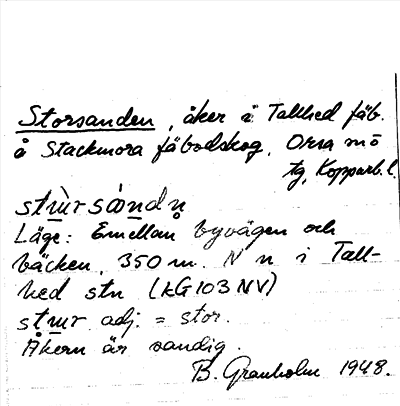 Storsanden, åker i Tallhed fäb.
å Stackmora fäbodskog, Orsa mō
tg, Kopparb. l.
stùrsándn̥
Läge: Emellan byvägen och
bäcken, 350 m. N n i Tall-
hed stn (KG 103 NV)
stur adj. = stor.
Åkern är sandig.
B. Granholm 1948.